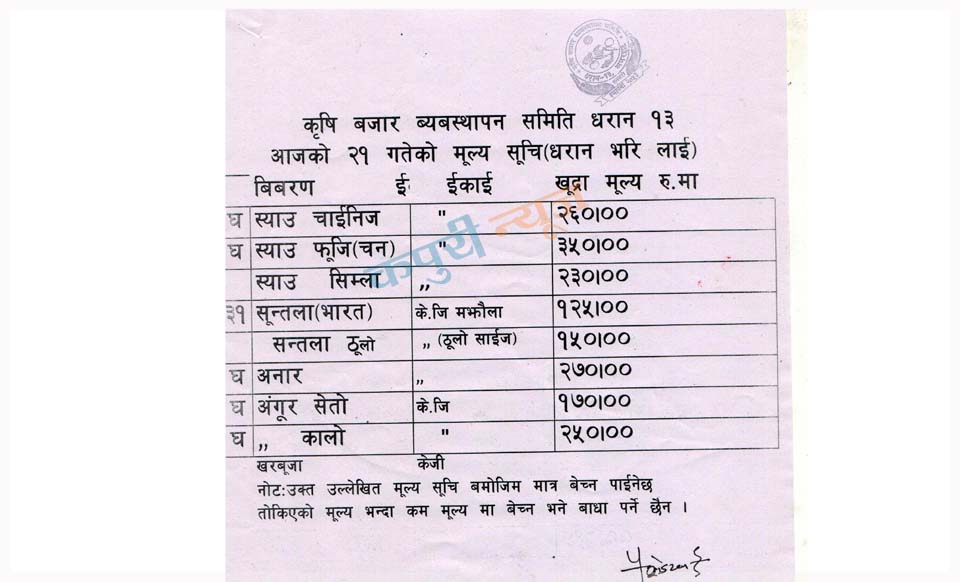 कृषि बजार ब्यबस्थापन समिति धरान १३
आजको २१ गतेको मूल्य सूचि(धरान भरि लाई)
बिबरण ई ईकाई खूद्रा मूल्य रु.मा
घ स्याउ चाईनिज " २६०|००
घ स्याउ फूजि(चन) " ३५०|००
स्याउ सिम्ला ,, २३०|००
३१ सून्तला(भारत) के.जि मझौला १२५|००
सन्तला ठूलो ,, (ठूलो साईज) १५०|००
घ अनार ,, २७०|००
घ अंगूर सेतो के.जि १७०|००
घ ,, कालो " २५०|००
खरबूजा केजी
नोट:उक्त उल्लेखित मूल्य सूचि बमोजिम मात्र बेच्न पाईनेछ
तोकिएको मूल्य भन्दा कम मूल्य मा बेच्न भने बाधा पर्ने छैन ।
कपुरी न्यूज